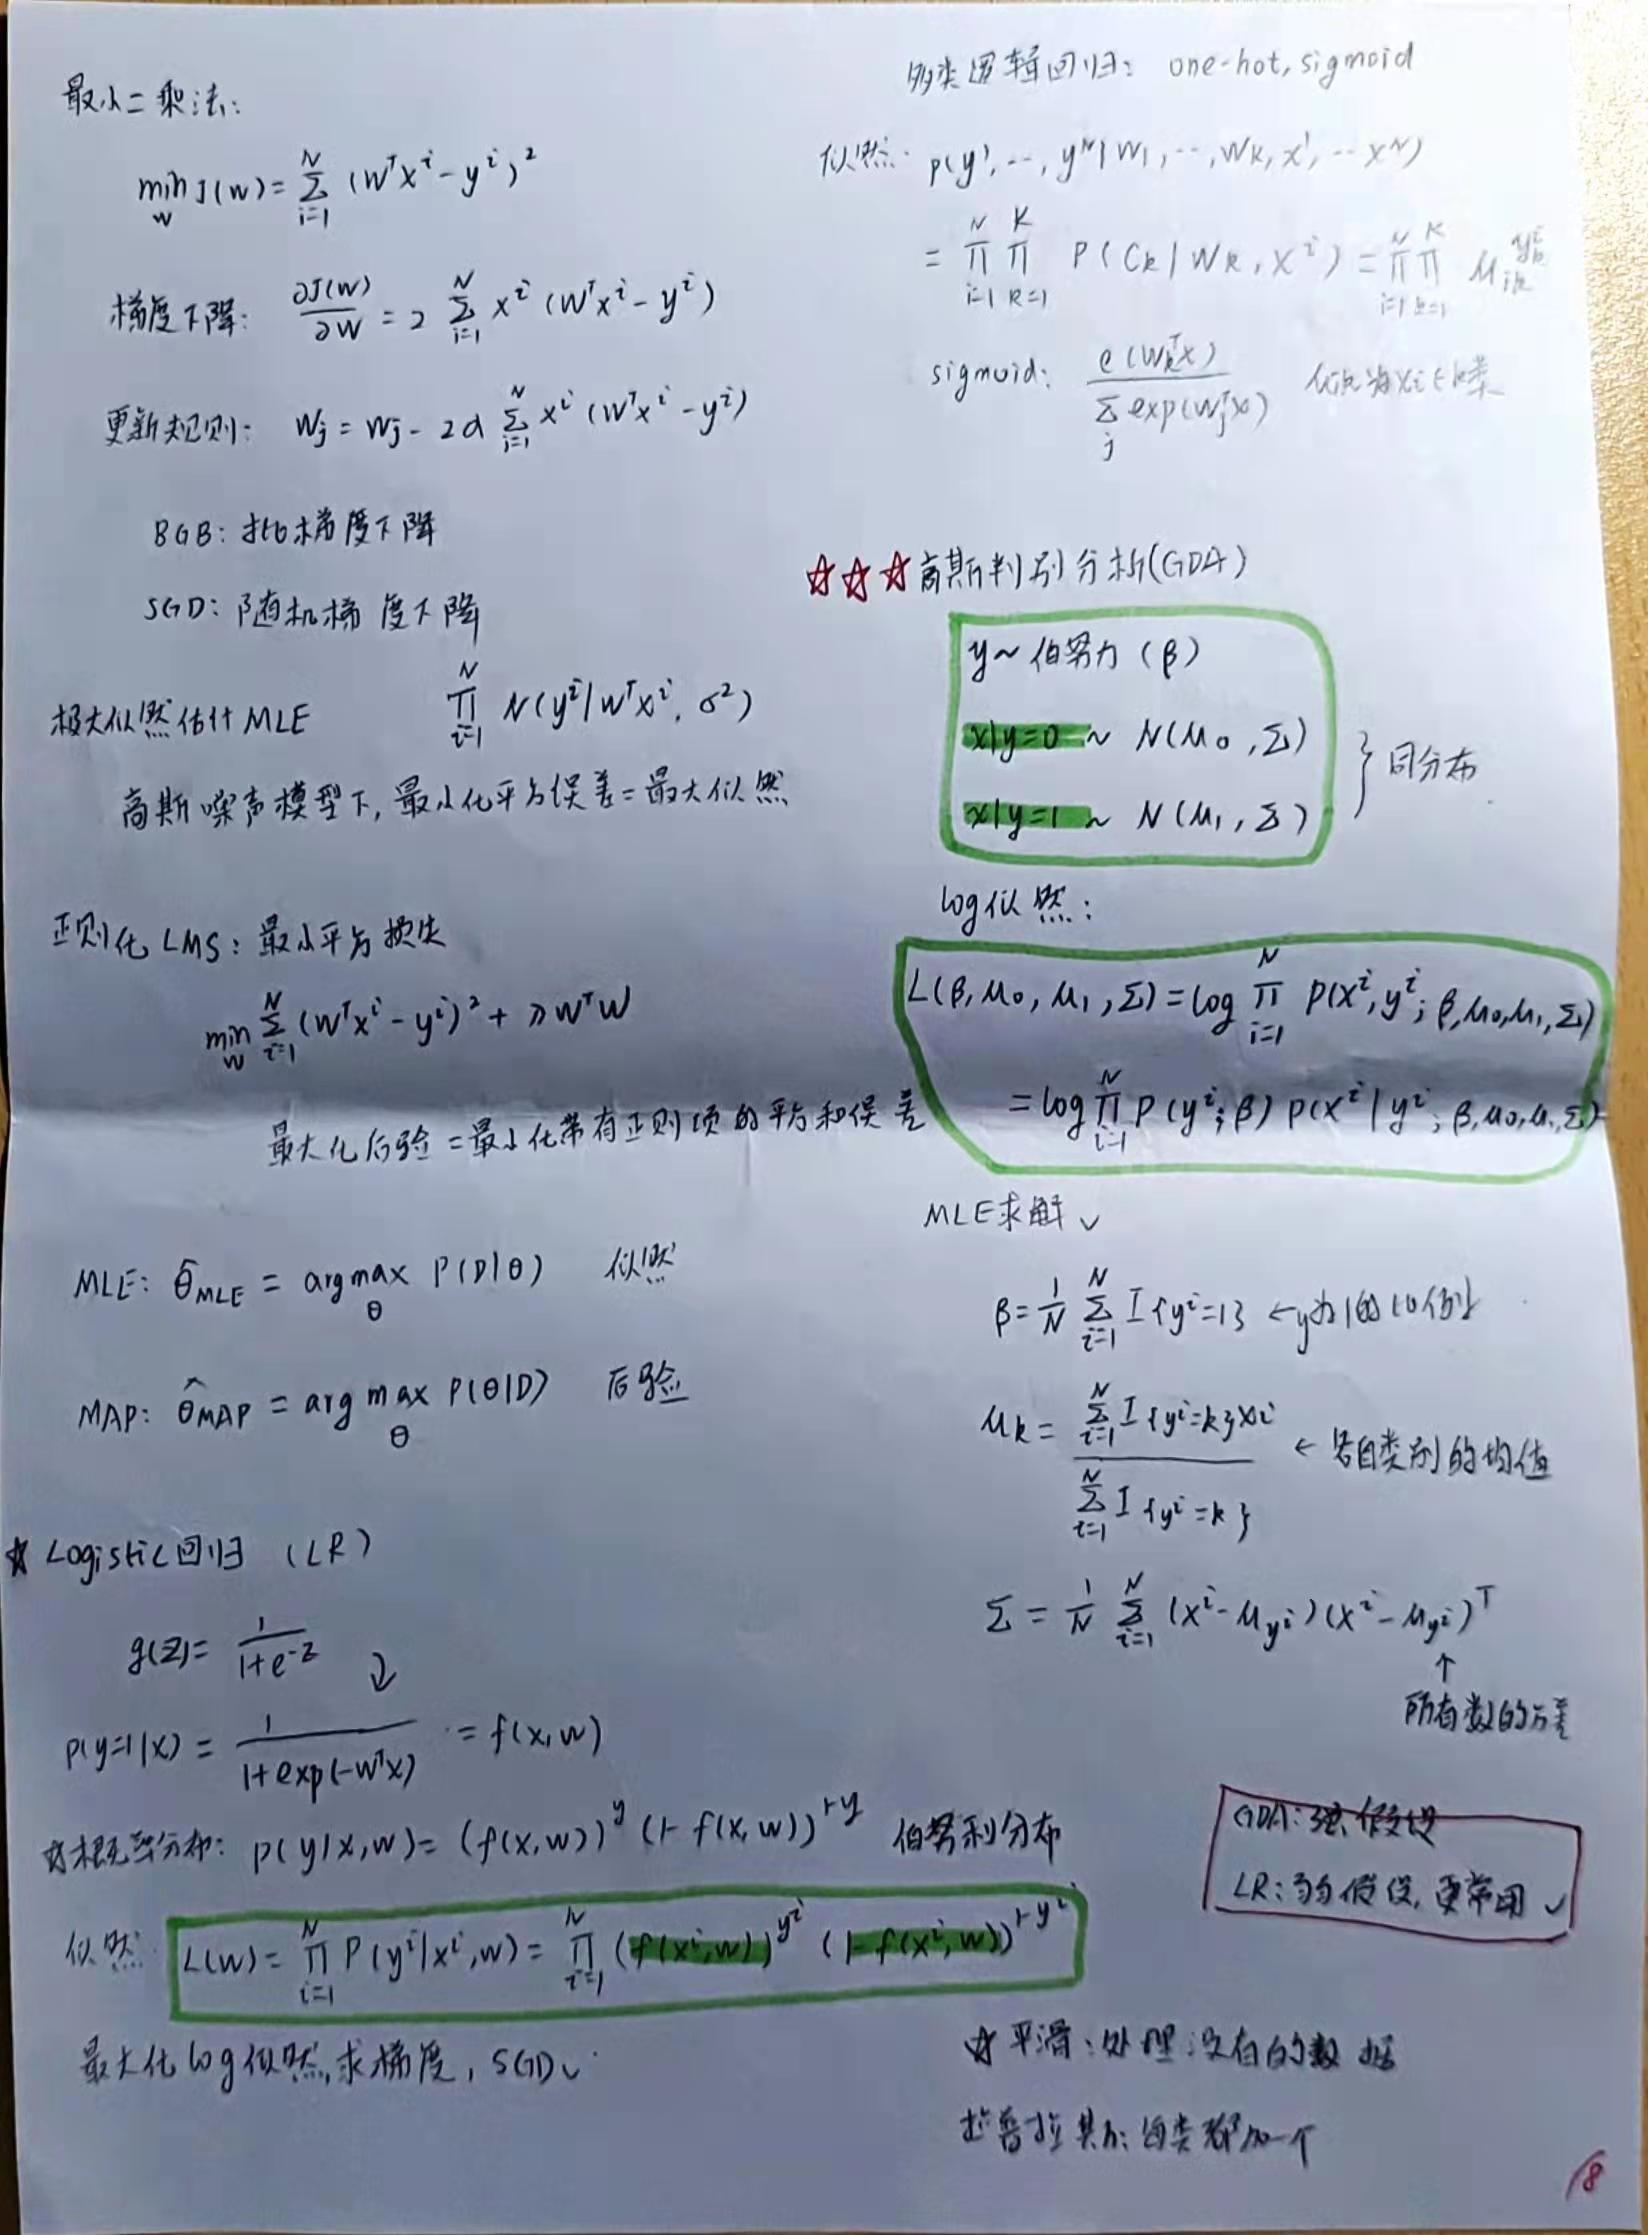 最小二乘法:
min_w J(w) = Σ_{i=1}^{N} (wᵀxⁱ - yⁱ)²
梯度下降: ∂J(w)/∂w = 2 Σ_{i=1}^{N} xⁱ (wᵀxⁱ - yⁱ)
更新规则: wj = wj - 2α Σ_{i=1}^{N} xⁱ (wᵀxⁱ - yⁱ)
BGB: 批梯度下降
SGD: 随机梯度下降
极大似然估计 MLE ∏_{i=1}^{N} N(yⁱ|wᵀxⁱ, σ²)
高斯噪声模型下, 最小化平方误差=最大似然
正则化 LMS: 最小平方损失
min_w Σ_{i=1}^{N} (wᵀxⁱ - yⁱ)² + λwᵀw
最大化后验 = 最小化带有正则项的平方和误差
MLE: θ̂_MLE = argmax_θ P(D|θ) 似然
MAP: θ̂_MAP = arg max_θ P(θ|D) 后验
☆ Logistic回归 (LR)
g(z) = 1/(1+e^{-z})
p(y=1|x) = 1/(1+exp(-wᵀx)) = f(x,w)
☆概率分布: p(y|x,w) = (f(x,w))^y (1-f(x,w))^{1-y} 伯努利分布
似然 L(w) = ∏_{i=1}^{N} P(yⁱ|xⁱ,w) = ∏_{i=1}^{N} (f(xⁱ,w))^{yⁱ} (1-f(xⁱ,w))^{1-yⁱ}
最大化log似然,求梯度, SGD✓
多类逻辑回归: one-hot, sigmoid
似然: p(y¹, ..., y^N|w₁, ..., w_k, x¹, ... x^N)
= ∏_{i=1}^{N} ∏_{k=1}^{K} P(C_k|w_k, xⁱ) = ∏_{i=1}^{N} ∏_{k=1}^{K} μ_{ik}^{y_k^i}
sigmoid: e(w_kᵀx) / Σ_j exp(w_jᵀx) xi∈k类
☆☆☆高斯判别分析(GDA)
y~伯努力 (β)
x|y=0 ~ N(μ₀, Σ)
x|y=1 ~ N(μ₁, Σ)
} 同分布
log似然:
L(β, μ₀, μ₁, Σ) = log ∏_{i=1}^{N} P(xⁱ, yⁱ; β, μ₀, μ₁, Σ)
= log ∏_{i=1}^{N} P(yⁱ; β) P(xⁱ|yⁱ; β, μ₀, μ₁, Σ)
MLE求解✓
β = 1/N Σ_{i=1}^{N} I{yⁱ=1} ←y为1的比例
μ_k = Σ_{i=1}^{N} I{yⁱ=k}xi / Σ_{i=1}^{N} I{yⁱ=k} ← 各自类别的均值
Σ = 1/N Σ_{i=1}^{N} (xⁱ - μ_{yⁱ})(xⁱ - μ_{yⁱ})ᵀ
↑
所有数的方差
GDA: 强假设
LR: 弱假设, 更常用✓
☆平滑: 处理没有的数据
拉普拉斯: 每类都加一个
18